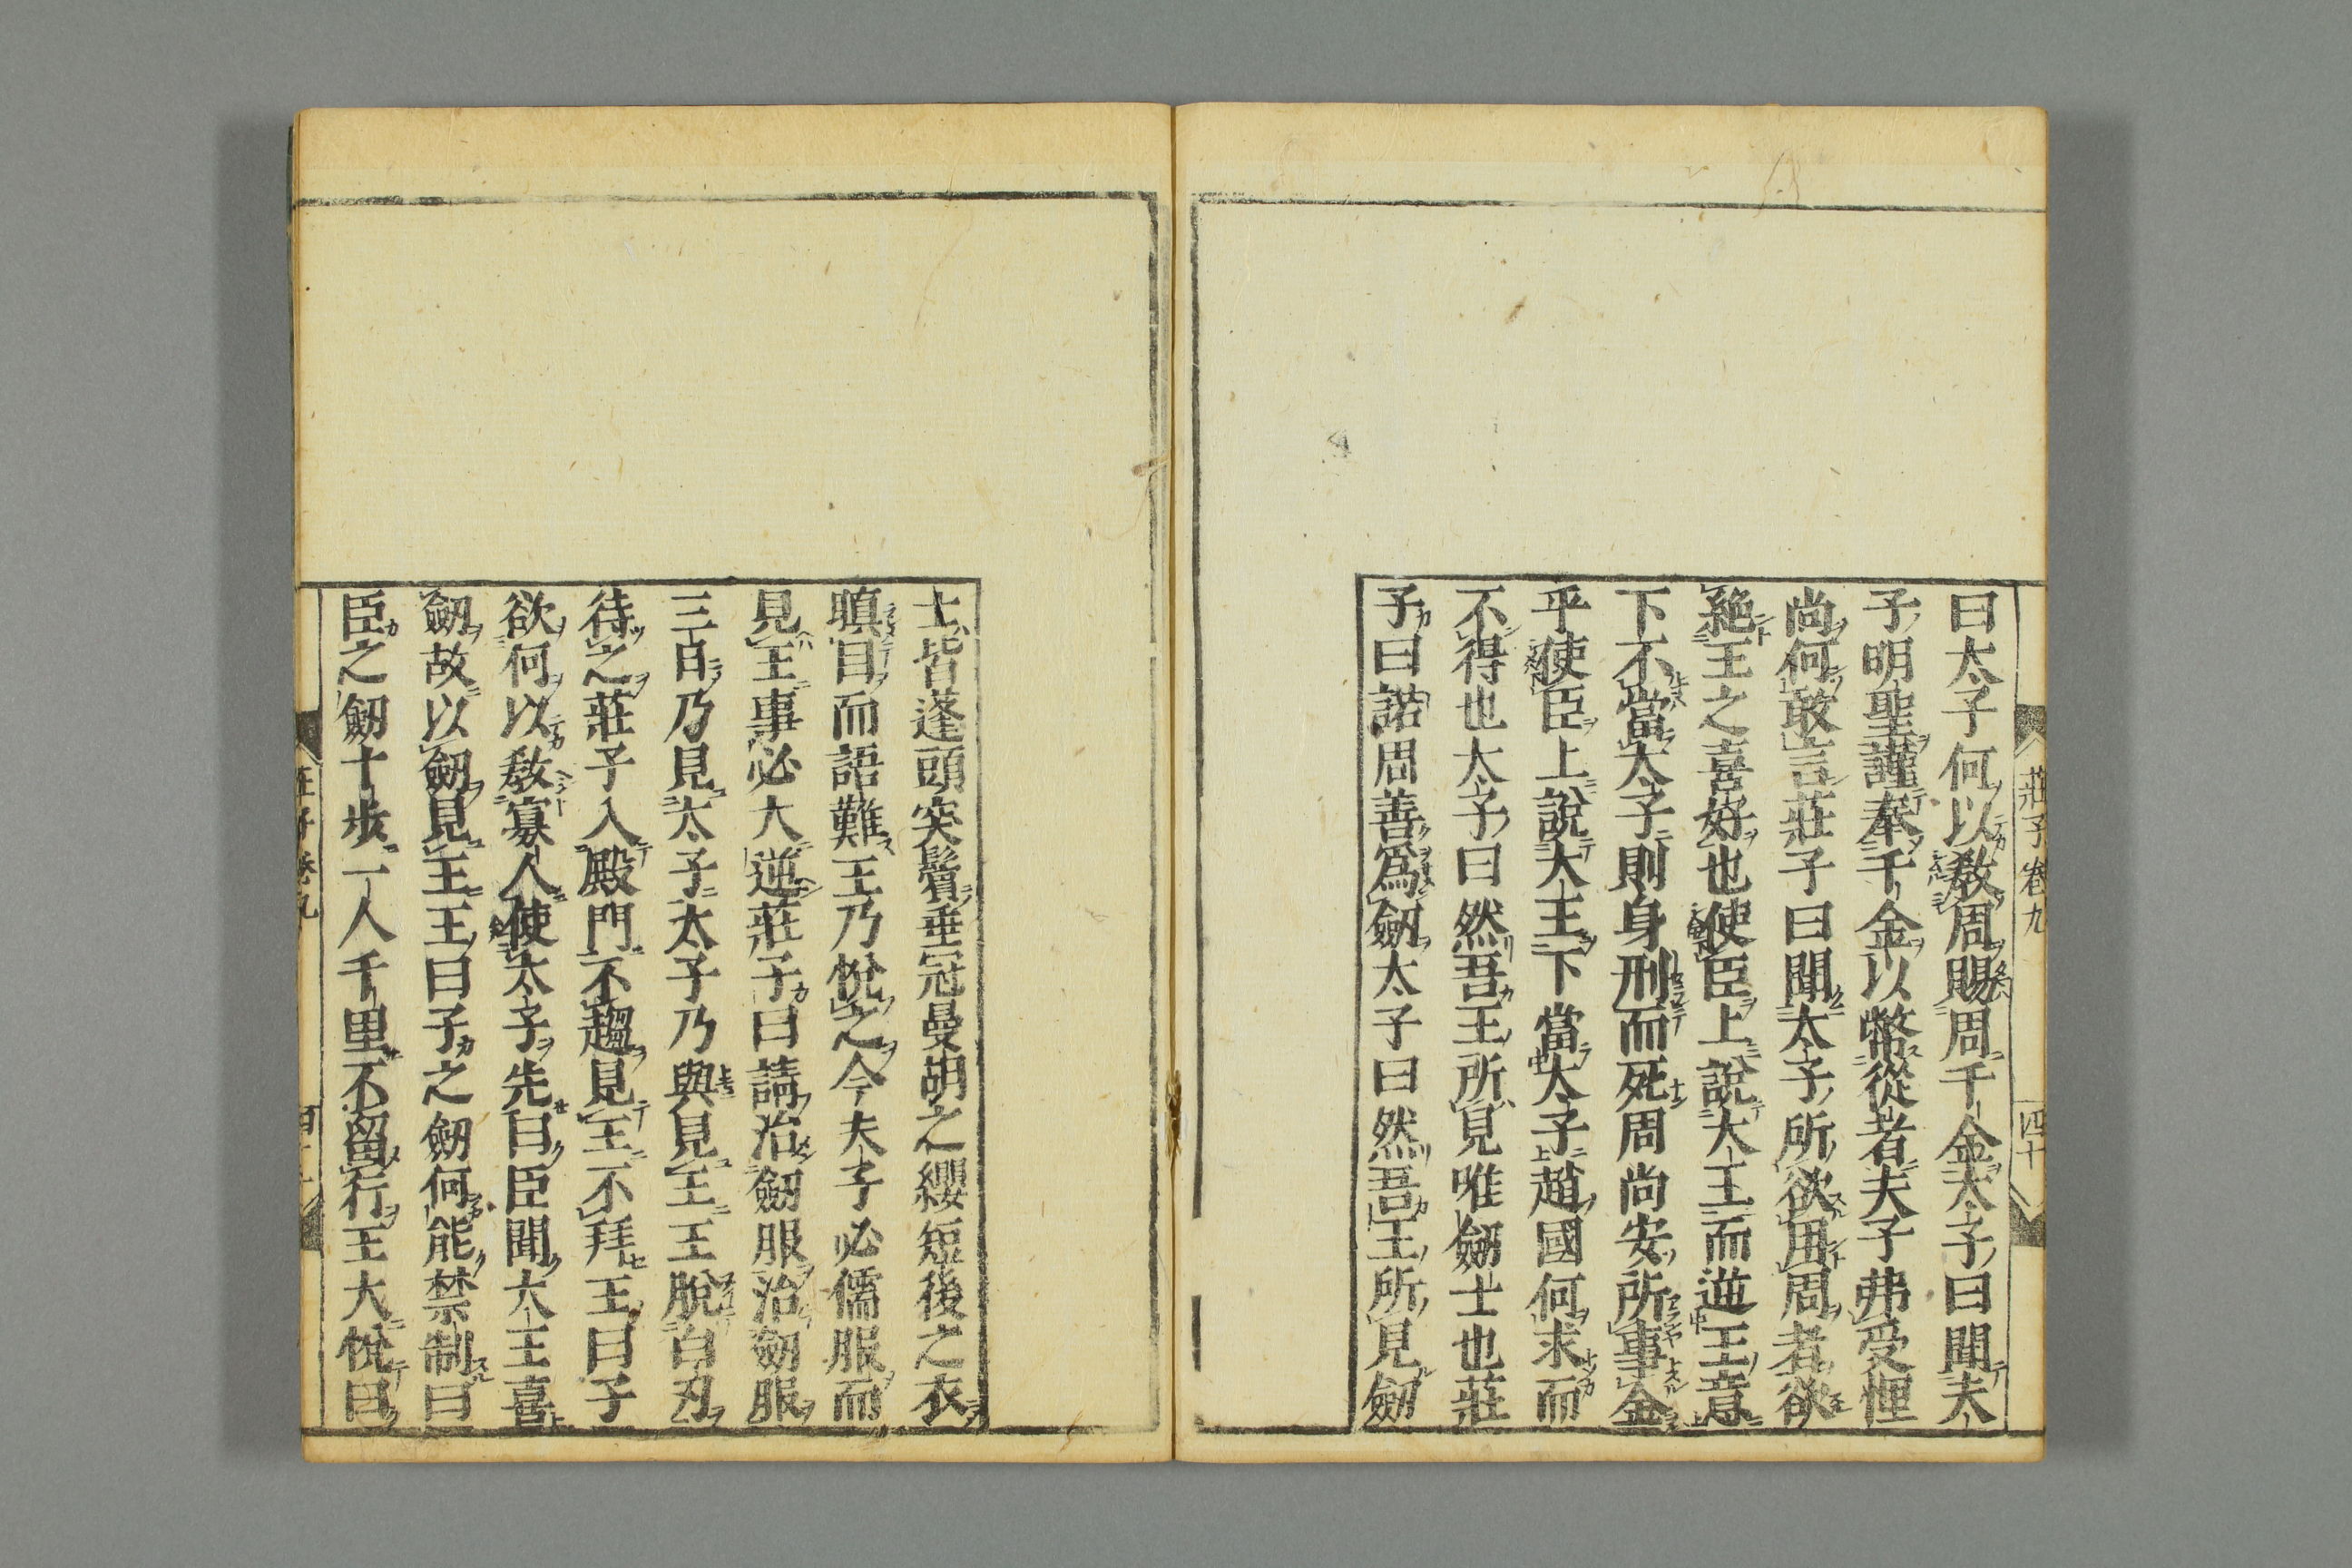 莊子卷九
四十
曰太子何以敎周賜周千金太子曰聞夫
子明聖謹奉千金以幣從者夫子弗受悝
尚何敢言莊子曰聞太子所欲用周者欲
絶王之喜好也使臣上說大王而逆王意
下不當太子則身刑而死周尚安所事金
乎使臣上說大王下當太子趙國何求而
不得也太子曰然吾王所見唯劒士也莊
子曰諾周善爲劒太子曰然吾王所見劒
士皆蓬頭突鬢垂冠曼胡之纓短後之衣
瞋目而語難王乃悅之今夫子必儒服而
見王事必大逆莊子曰請治劒服治劒服
三百乃見太子太子乃與見王王脫白刃
待之莊子入殿門不趨見王不拜王曰子
欲何以敎寡人使太子先曰臣聞大王喜
劒故以劒見王王曰子之劒何能禁制曰
臣之劒十步一人千里不留行王大悅曰
莊子卷九